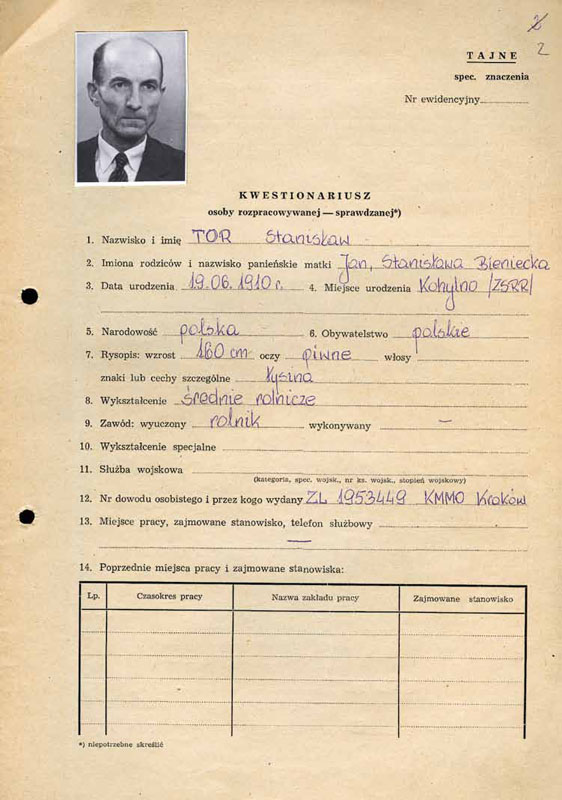 2
TAJNE
spec. znaczenia
Nr ewidencyjny
KWESTIONARIUSZ
osoby rozpracowywanej — sprawdzanej*)
1. Nazwisko i imię TOR Stanisław -
2. Imiona rodziców i nazwisko panieńskie matki Jan, Stanisława Bieniecka
3. Data urodzenia 19.06.1910 r. 4. Miejsce urodzenia Kohylno /ZSRR/
5. Narodowość polska 6. Obywatelstwo polskie
7. Rysopis: wzrost 160 cm oczy piwne włosy
znaki lub cechy szczególne łysina
8. Wykształcenie średnie rolnicze
9. Zawód: wyuczony rolnik wykonywany —
10. Wykształcenie specjalne
11. Służba wojskowa
(kategoria, spec. wojsk., nr ks. wojsk., stopień wojskowy)
12. Nr dowodu osobistego i przez kogo wydany ZL 1953449 KMMO Kraków
13. Miejsce pracy, zajmowane stanowisko, telefon służbowy
—
14. Poprzednie miejsca pracy i zajmowane stanowiska:
Lp. Czasokres pracy Nazwa zakładu pracy Zajmowane stanowisko
*) niepotrzebne skreślić